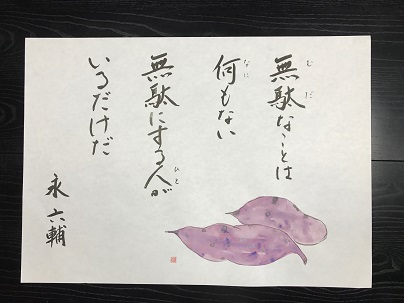 無駄なことは
何もない
無駄にする人が
いるだけだ
永六輔